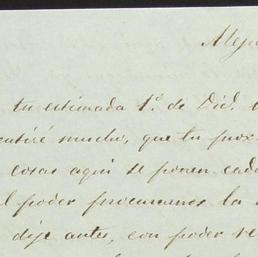 Alej
tu estimada 1º. de Dic.
entiré mucho, que tu prox
cosas aqui se ponen cada
l poder procuramos la
dije antes, con poder re